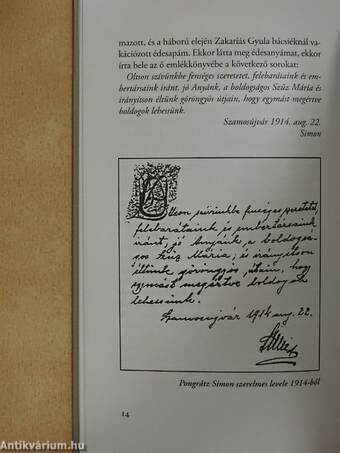 mazott, és a háború elején Zakariás Gyula bácséiknál va-
kációzott édesapám. Ekkor látta meg édesanyámat, ekkor
írta bele az ő emlékkönyvébe a következő sorokat:
Oltson szívünkbe fenséges szeretetet, felebarátaink és em-
bertársaink iránt, jó Anyánk, a boldogságos Szűz Mária és
irányítson éltünk göröngyös útjain, hogy egymást megértve
boldogok lehessünk.
Szamosújvár 1914. aug. 22.
Simon
Oltson szívünkbe fenséges szeretetet,
felebarátaink és embertársaink
iránt, jó Anyánk, a boldogsá-
gos Szűz Mária; és irányítson
éltünk göröngyös útain, hogy
egymást megértve boldogok
lehessünk.
Szamosujvár 1914 aug. 22.
Pongrátz Simon szerelmes levele 1914-ből
14
Antikvárium.hu